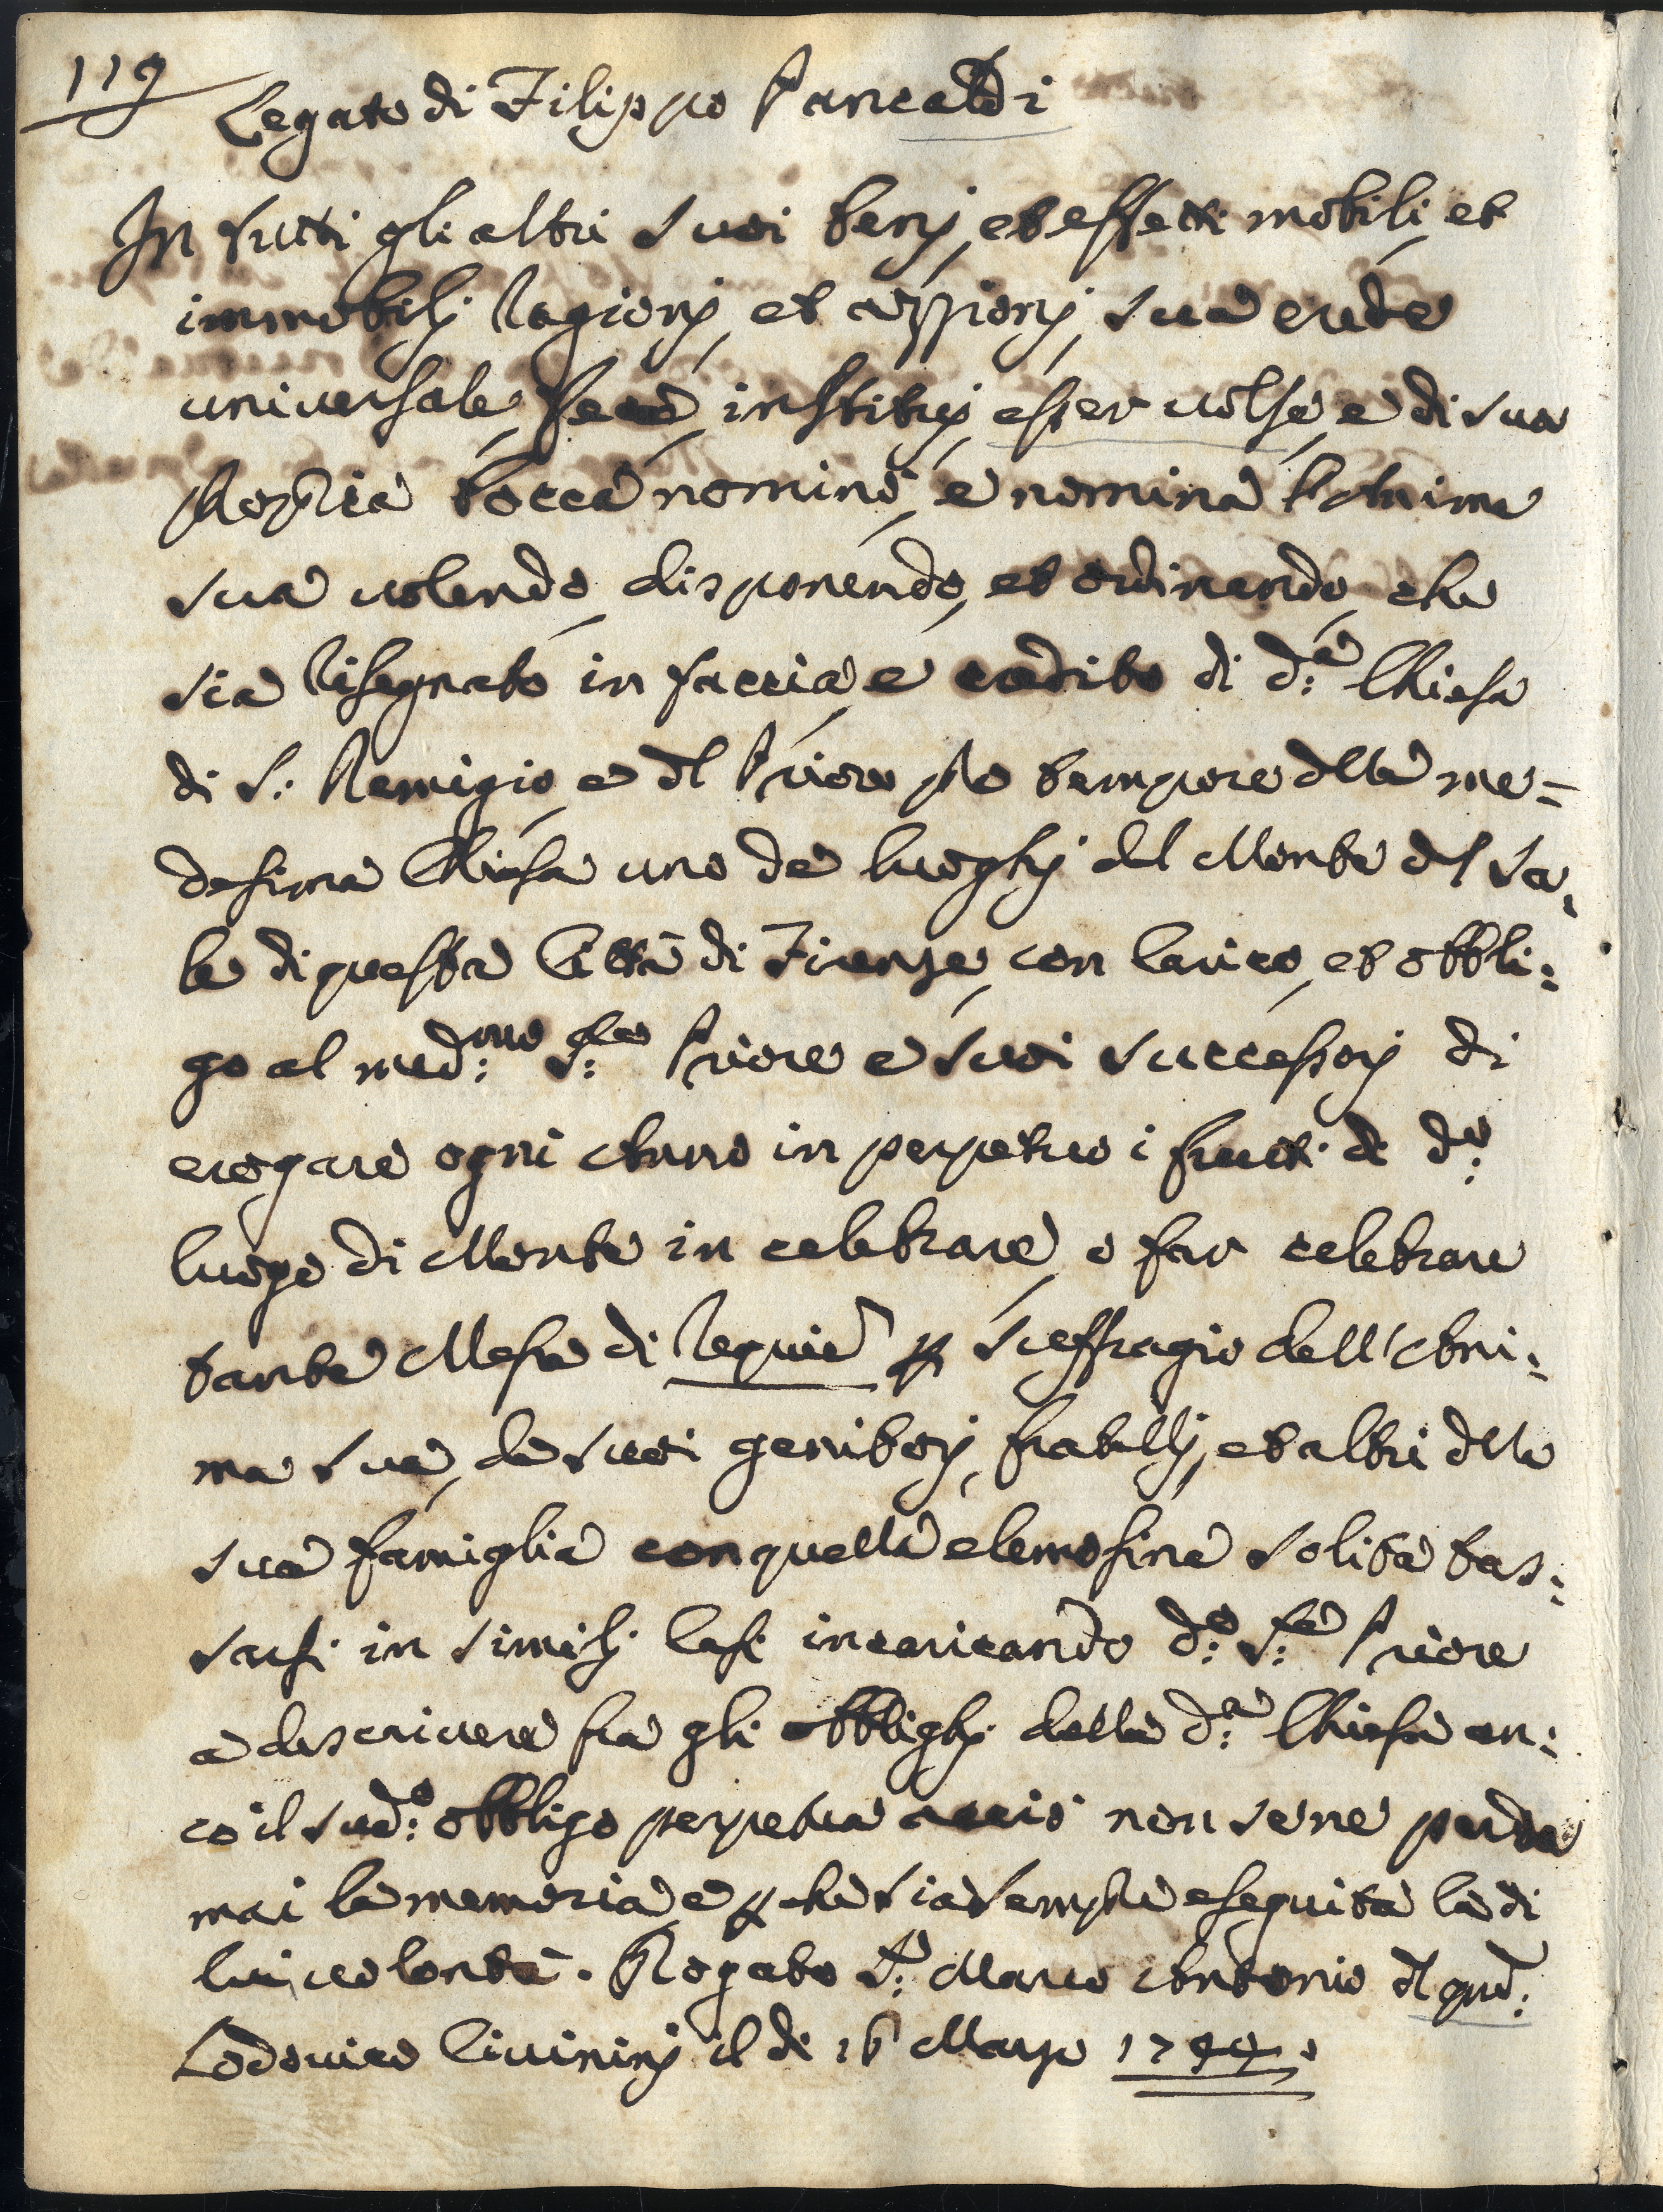 119
Legato di Filippo Pancaldi
In tutti gli altri suoi benj, et effetti mobili, et
immobilj ragionj, et azzionj, sua erede
universale, fece, instituj, esser volse, e di sua
propria bocca nominò, e nomina l'Anima
sua volendo, disponendo, et ordinando, che
sia risegnato in faccia, e credito di d:a Chiesa
di S: Remigio, e dl Priore pro tempore dlla me=
desima Chiesa uno de luoghj del Monte del Sa:
le di questa Città di Firenze, con carico, et obbli:
go al med:mo S:re Priore e suoi successorj di
erogare ogni Anno in perpetuo i frutti di d:o
luogo di Monte in celebrare, o far celebrare
tante Messe di requie p suffragio dell'Ani:
ma sua, de suoi genitorj, fratellj, et altri dlla
sua famiglia con quella elemosina solita tas:
sarsi in similj casi incaricando d:o S:re Priore
a descrivere fra gli obblighj della d:a Chiesa an:
co il sud:o obbligo perpetuo acciò non se ne perda
mai la memoria, e pche sia sempre eseguita la di
lui volontà. Rogato S:r Marco Antonio dl qud:
Lodovico Civininj il di 16 Marzo 1744.